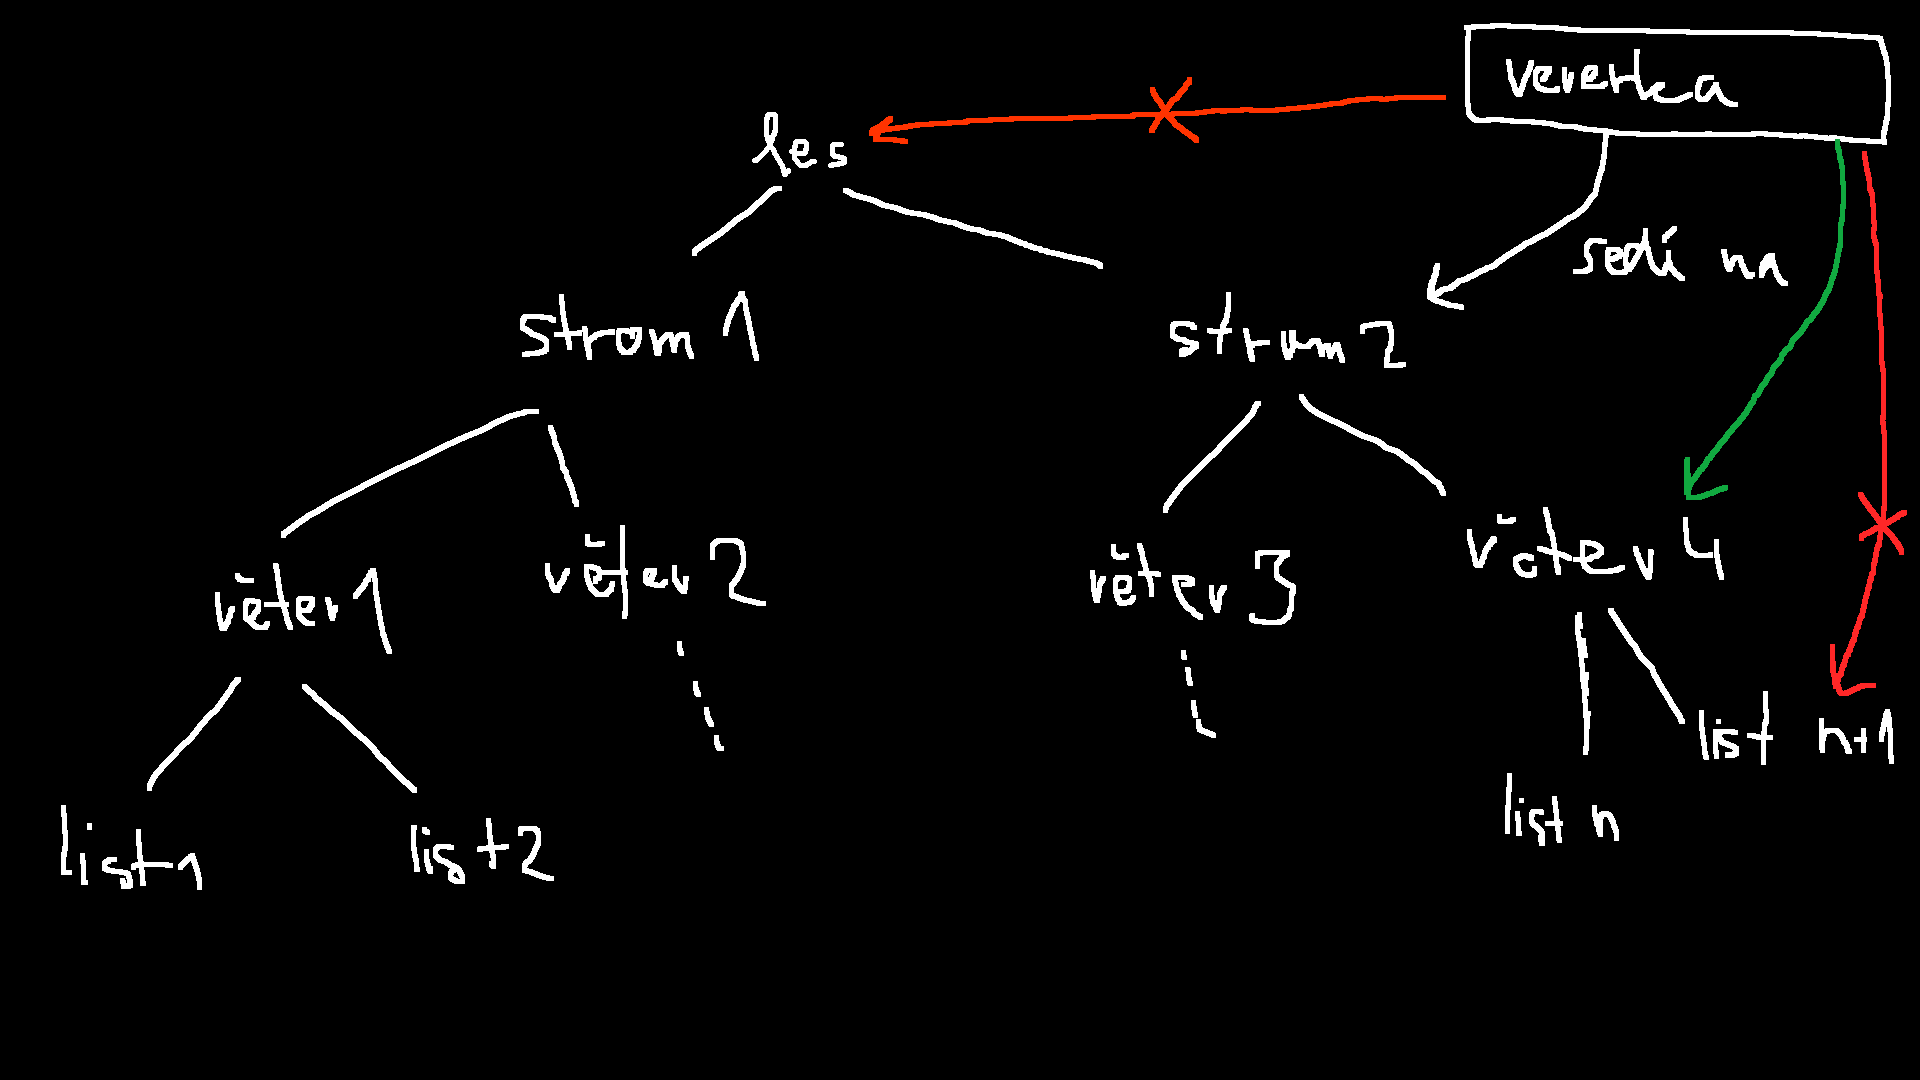 veverka
les
sedí na
strom 1
strom 2
větev 1
větev 2
větev 3
větev 4
list 1
list 2
list n
list n+1